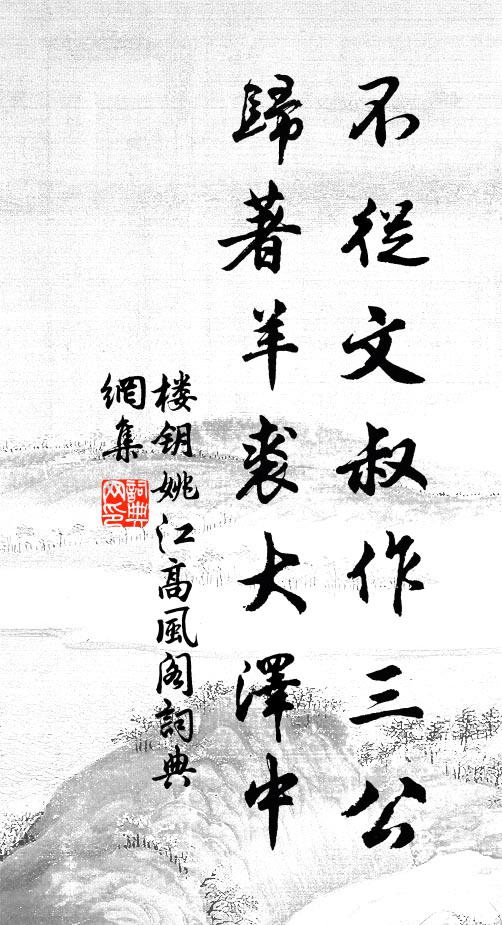 不從文叔作三公
歸著羊裘大澤中
楼钥姚江高風阁詞典
網集
詞典
网印